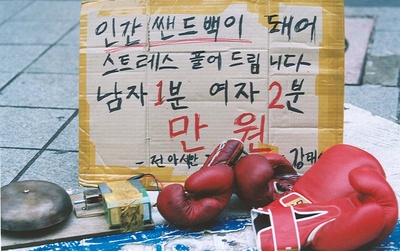 인간 쌘드백이 돼어
스트레스 풀어드립니다
남자 1분 여자 2분
만 원